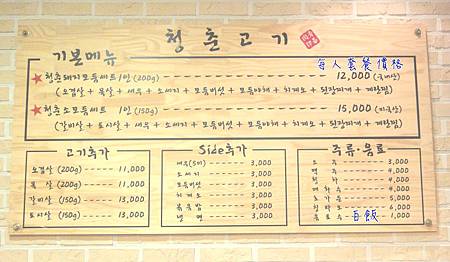 청춘고기
기본메뉴
每人套餐價格
★청춘돼지모듬세트 1인 (200g) 12,000 (국내산)
(오겹살 + 목살 + 새우 + 소세지 + 모듬버섯 + 모듬야채 + 치게소 + 된장찌개 + 계란찜)
★청춘소모듬세트 1인 (150g) 15,000
(갈비살 + 토시살 + 새우 + 소세지 + 모듬버섯 + 모듬야채 + 치게소 + 된장찌개 + 계란찜)
고기추가
오겹살 (200g) 11,000
목 살 (200g) 11,000
갈비살 (150g) 13,000
토시살 (150g) 13,000
Side추가
새우(5미) 3,000
소세지 3,000
모듬버섯 3,000
치게소 3,000
볶음밥 3,000
냉면 3,000
주류·음료
소주 3,000
맥주 4,000
청하 4,000
매화수 4,000
5,000
6,000
음료수 1,000
白飯